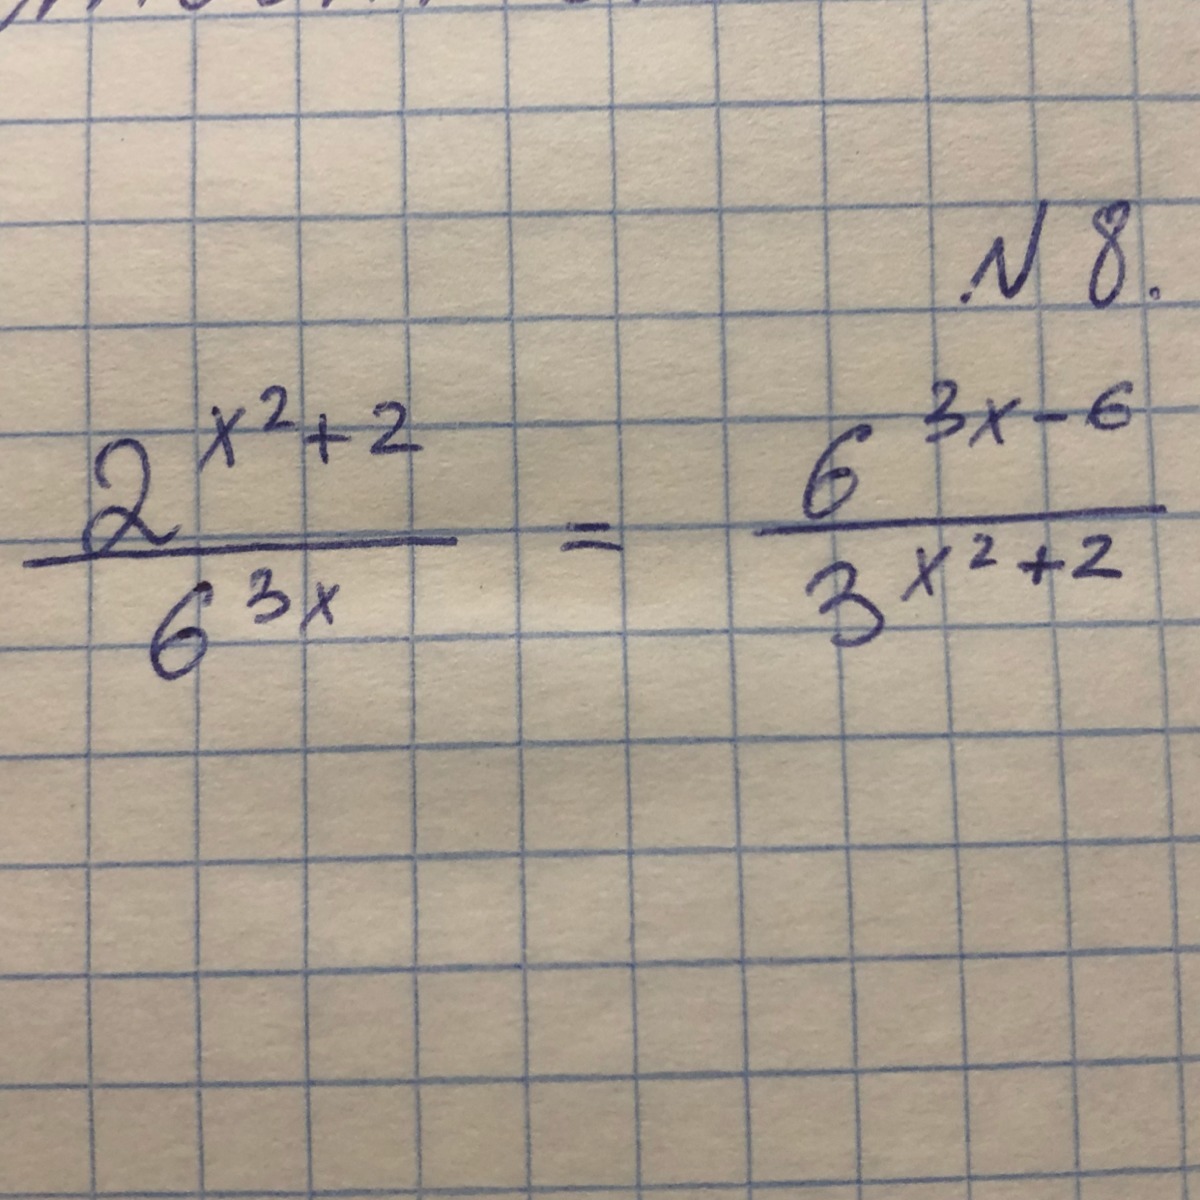 № 8.
2^{x²+2} / 6^{3x} = 6^{3x-6} / 3^{x²+2}